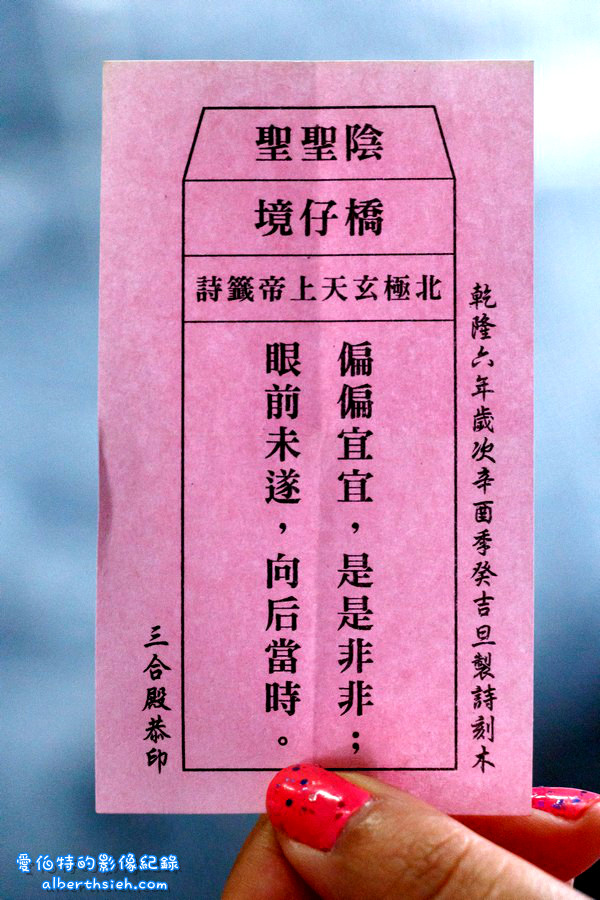 陰聖聖
橋仔境
北極玄天上帝籤詩
偏偏宜宜，是是非非；
眼前未遂，向后當時。
乾隆六年歲次辛酉季癸吉旦製詩刻木
三合殿恭印
愛伯特的影像紀錄
alberthsieh.com